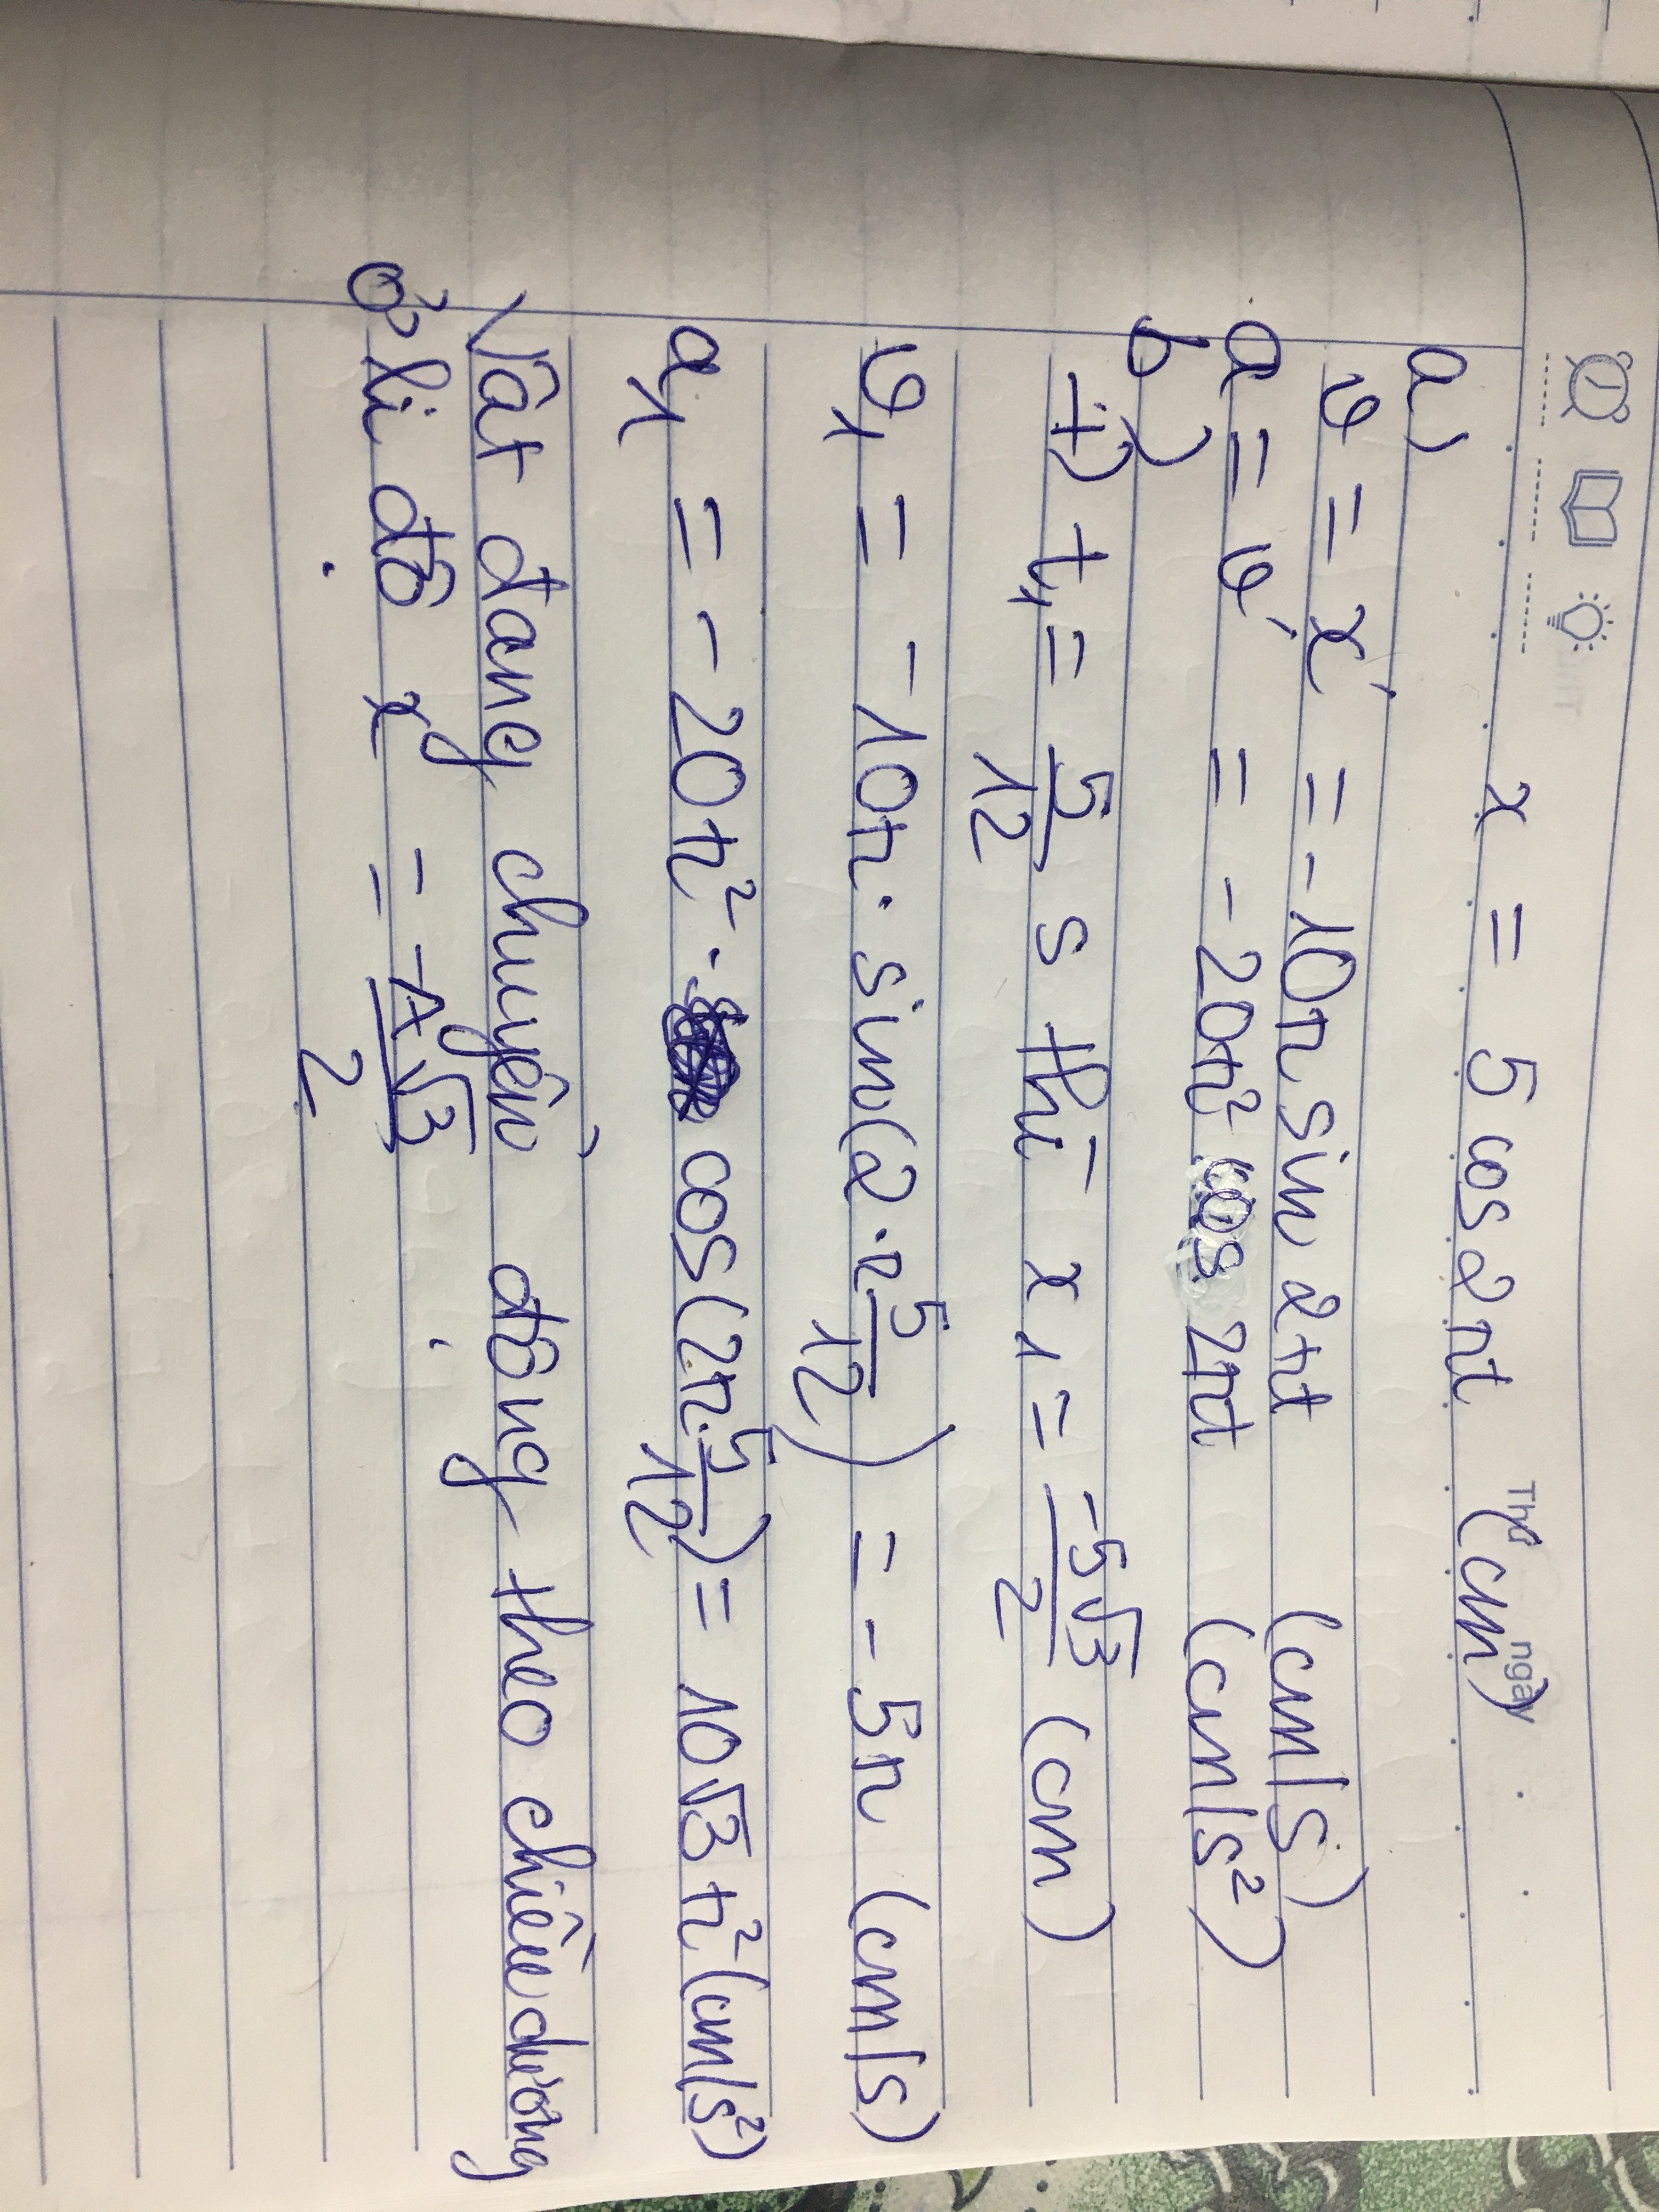 Thứ ngày
x = 5 cos 2πt (cm)
a)
v = x' = -10π sin 2πt (cm/s)
a = v' = -20π² cos 2πt (cm/s²)
b)
+) t₁ = 5/12 s thì x₁ = -5√3/2 (cm)
v₁ = -10π. sin(2.π 5/12) = -5π (cm/s)
a₁ = -20π². cos(2π.5/12) = 10√3π² (cm/s²)
Vật đang chuyển động theo chiều dương
ở li độ x = -A√3/2